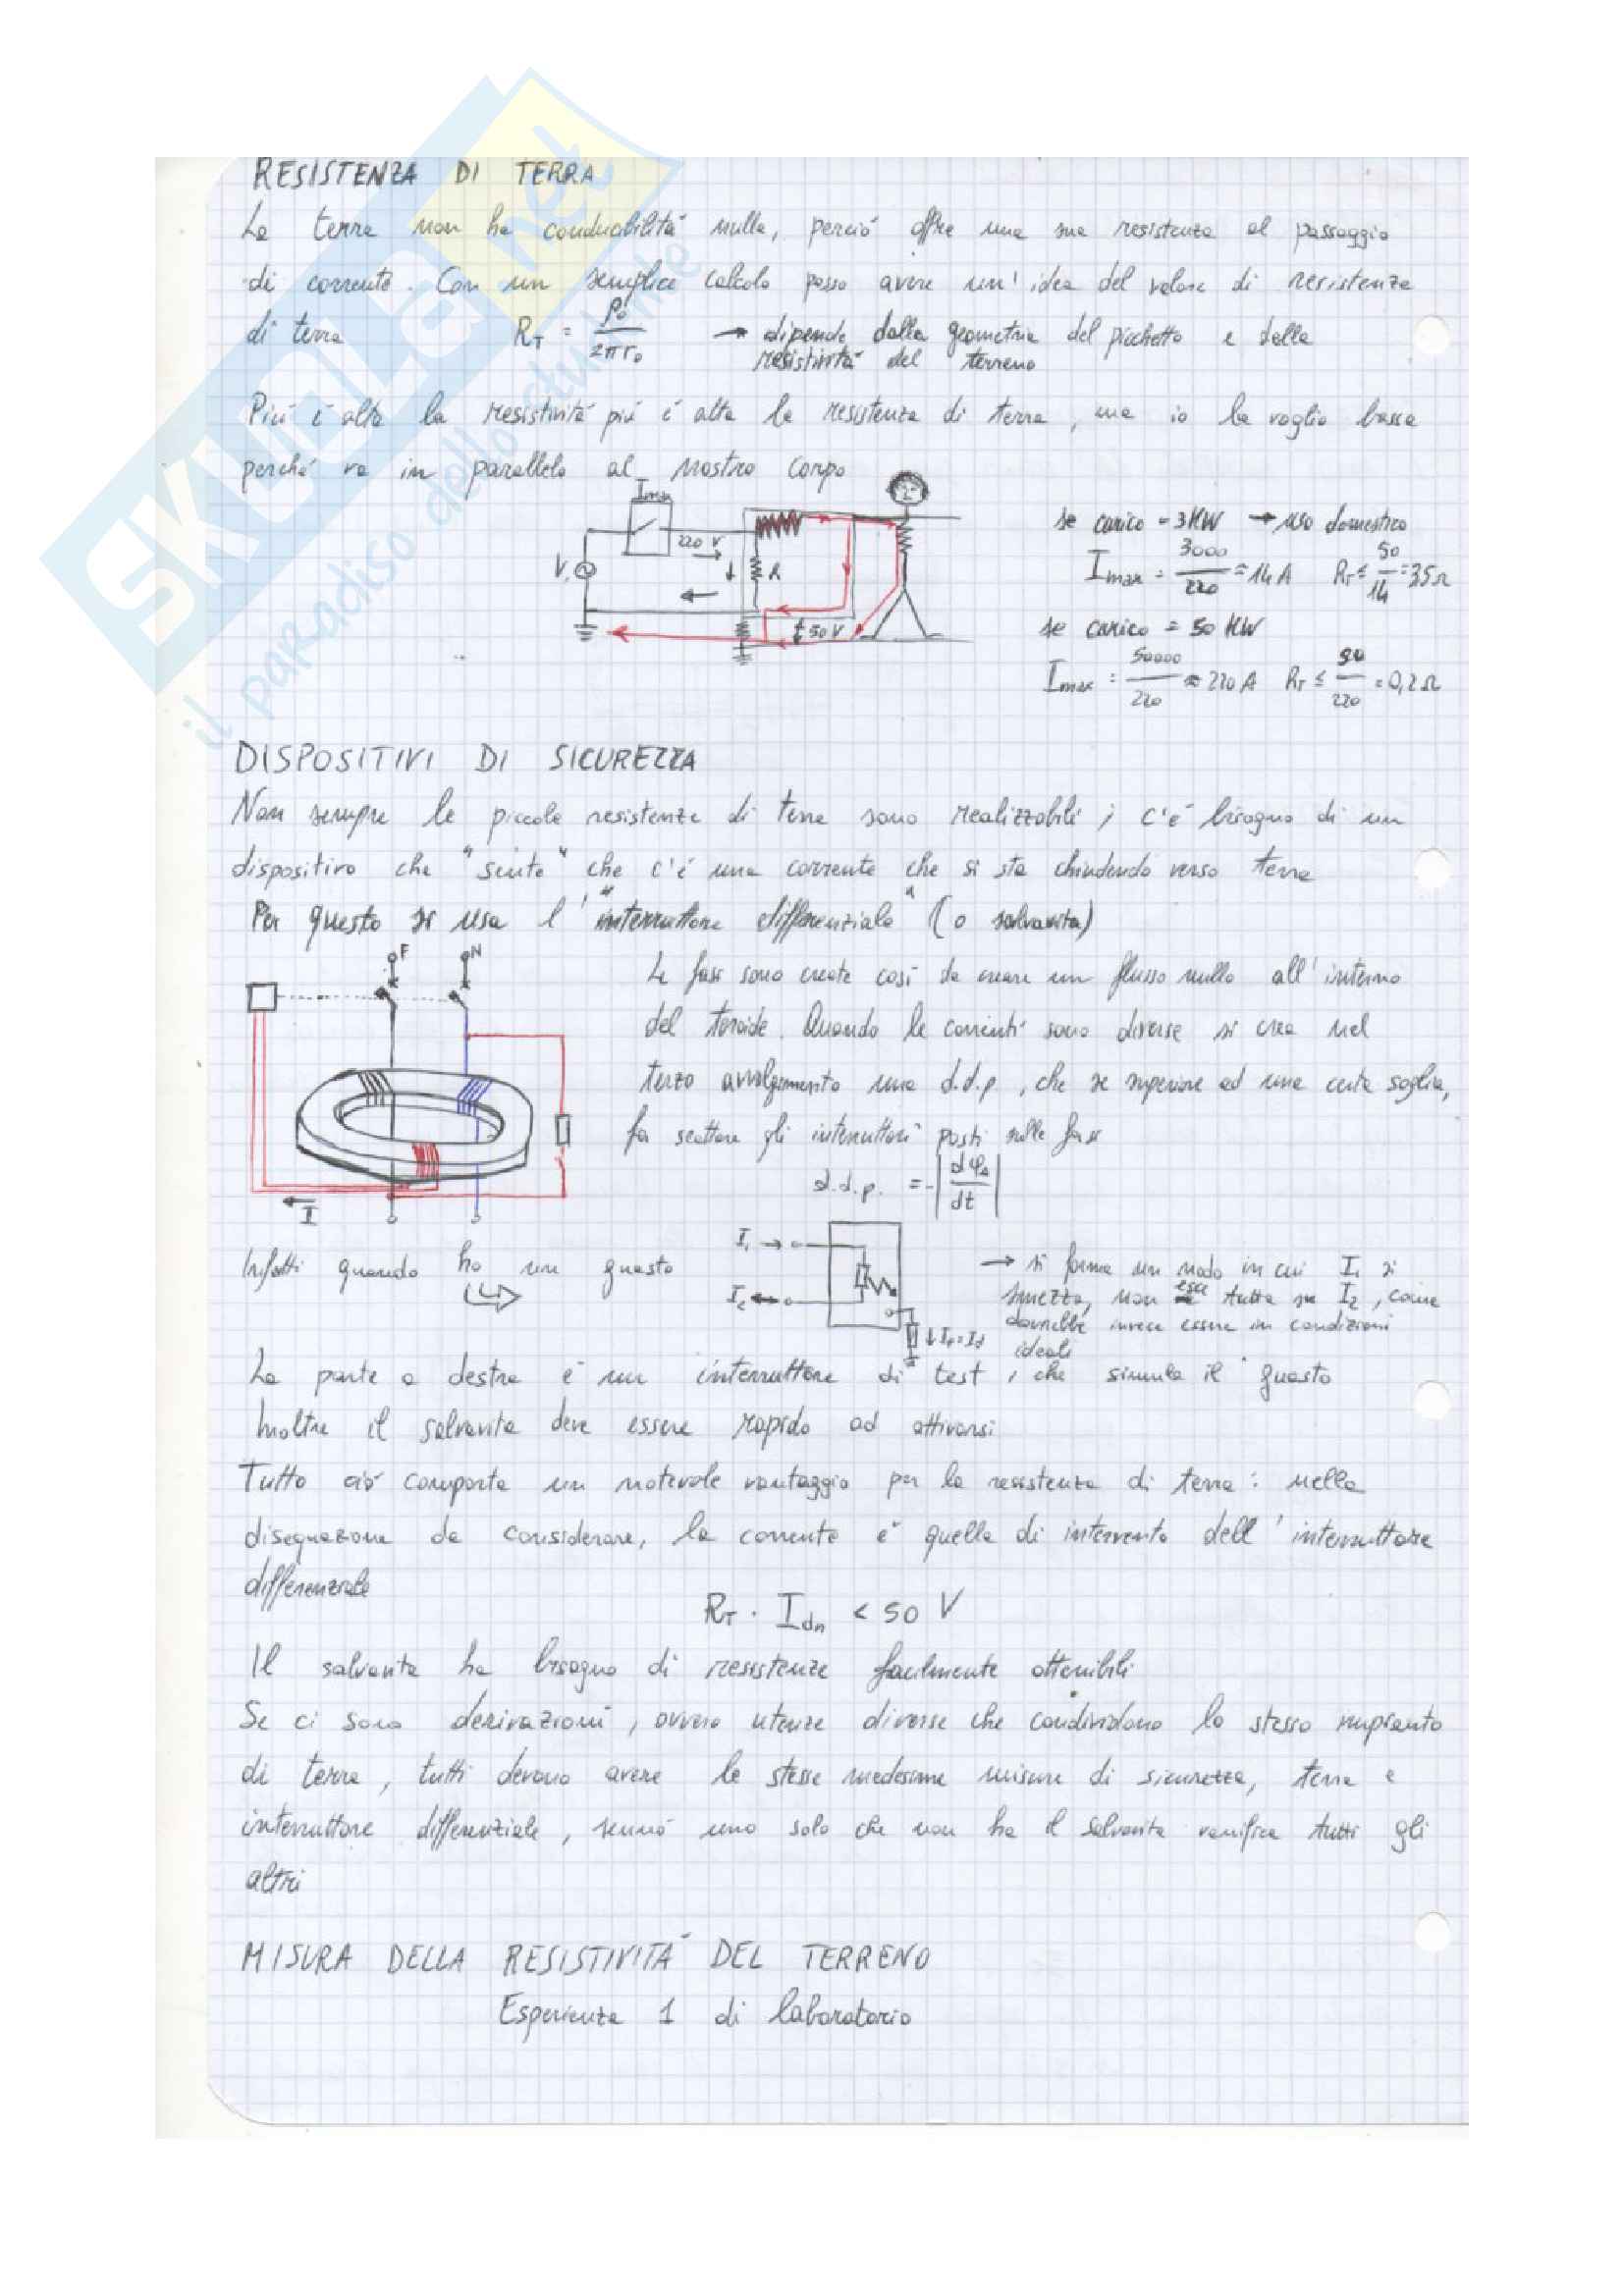 RESISTENZA DI TERRA
La terra non ha conducibilitá nulla, perció offre una sua resistenza al passaggio
di corrente. Con un semplice calcolo posso avere un'idea del valore di resistenza
di terra RT = ρ0 / 2πr0 → dipende dalla geometria del picchetto e dalla
resistivitá del terreno
Piú é alta la resistivitá piú é alta la resistenza di terra, ma io la voglio bassa
perché va in parallelo al nostro corpo
Imax
220 V
V
R
50 V
se carico = 3KW → uso domestico
Imax = 3000 / 220 = 14 A RT ≤ 50 / 14 = 35Ω
se carico = 50 KW
Imax = 50000 / 220 ≈ 220 A RT ≤ 50 / 220 = 0,2Ω
DISPOSITIVI DI SICUREZZA
Non sempre le piccole resistenze di terra sono realizzabili; c'é bisogno di un
dispositivo che "sente" che c'é una corrente che si sta chiudendo verso terra
Per questo si usa l'"interruttore differenziale" (o salvavita)
F N
Le fasi sono create cosí da creare un flusso nullo all'interno
del toroide. Quando le correnti sono diverse si crea nel
terzo avvolgimento una d.d.p., che se superiore ad una certa soglia,
fa scattare gli interruttori posti sulle fasi
d.d.p. = -|dφ / dt|
I
Infatti quando ho un guasto
I1
I2
→ si forma un nodo in cui I1 si
smezza, non esce tutta su I2, come
dovrebbe invece essere in condizioni
ideali
La parte a destra é un interruttore di test, che simula il guasto
Inoltre il salvavita deve essere rapido ad attivarsi
Tutto ció comporta un notevole vantaggio per la resistenza di terra: nella
disequazione da considerare, la corrente é quella di intervento dell'interruttore
differenziale
RT · Idn < 50 V
Il salvavita ha bisogno di resistenze facilmente ottenibili
Se ci sono derivazioni, ovvero utenze diverse che condividono lo stesso impianto
di terra, tutti devono avere le stesse medesime misure di sicurezza, terra e
interruttore differenziale, sennó uno solo che non ha il salvavita vanifica tutti gli
altri
MISURA DELLA RESISTIVITÁ DEL TERRENO
Esperienza 1 di laboratorio
SKUOLA.net
il paradiso dello studente